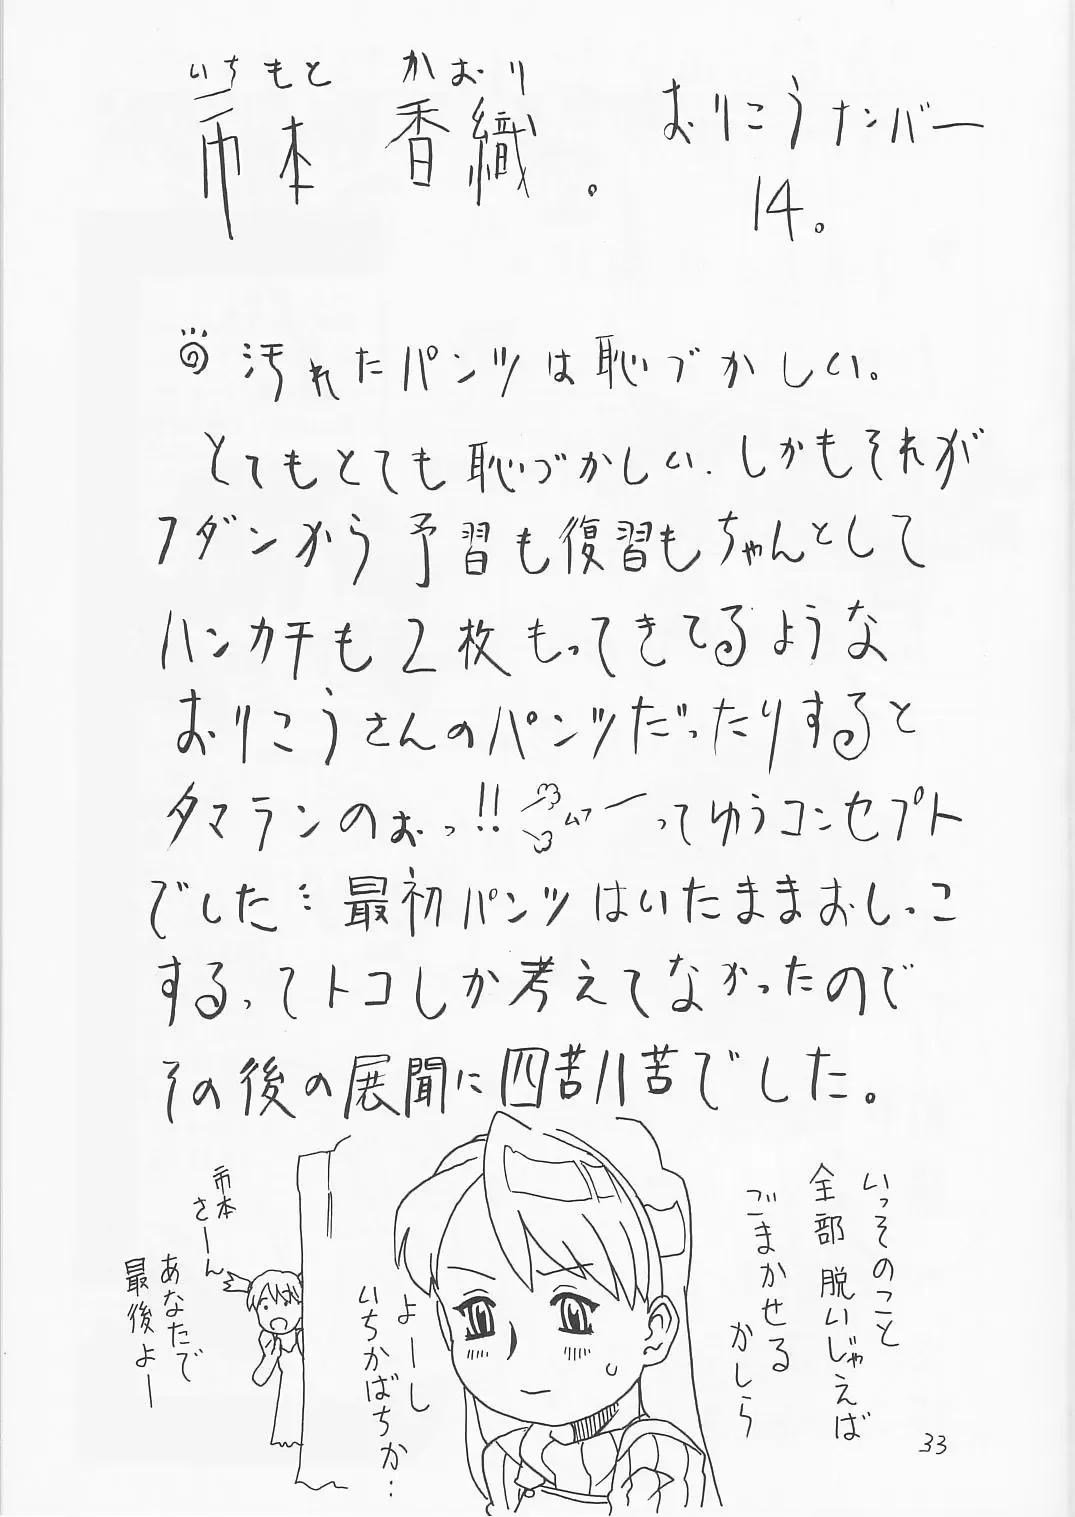 いちもと かおり
市本 香織。
おりこうナンバー
14。
汚れたパンツは恥づかしい。
とてもとても恥づかしい. しかもそれが
フダンから予習も復習もちゃんとして
ハンカチも2枚もってきてるような
おりこうさんのパンツだったりすると
タマランのぉっ!! ムフーってゆうコンセプト
でした… 最初パンツはいたままおしっこ
するってトコしか考えてなかったので
その後の展開に四苦八苦でした。
いっそのこと
全部脱いじゃえば
ごまかせる
かしら
よーし
いちかばちか…
市本
さーん
あなたで
最後よー
33